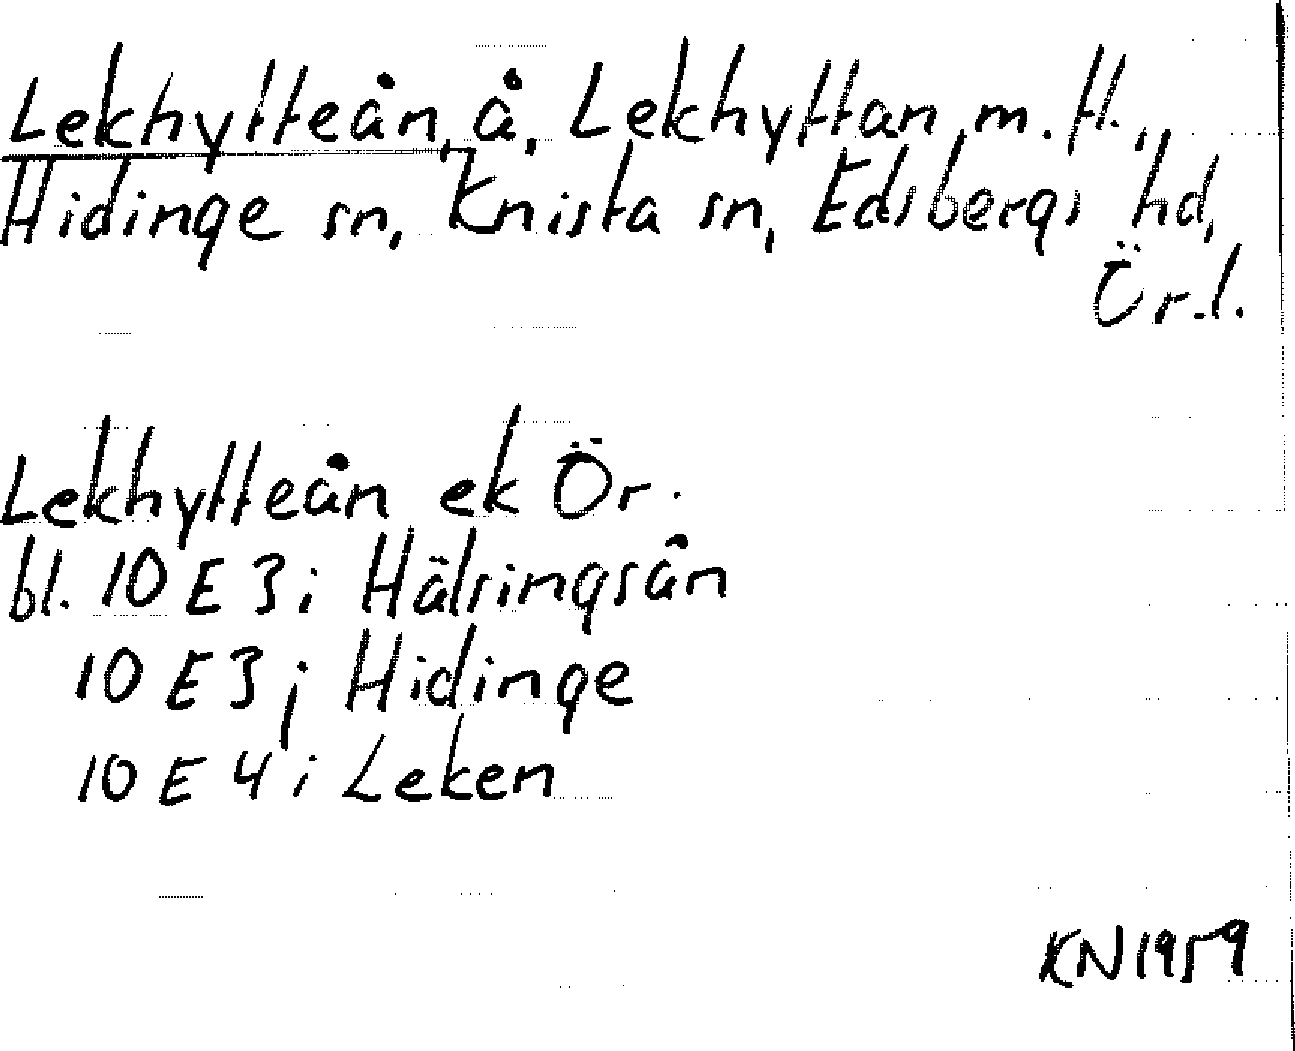 Lekhytteån, å, Lekhyttan, m. fl.,
Hidinge sn, Knista sn, Edsbergs hd,
Ör. l.
Lekhytteån ek Ör.
bl. 10 E 3 i Hälsingsån
10 E 3 j Hidinge
10 E 4 i Leken
KN 1959